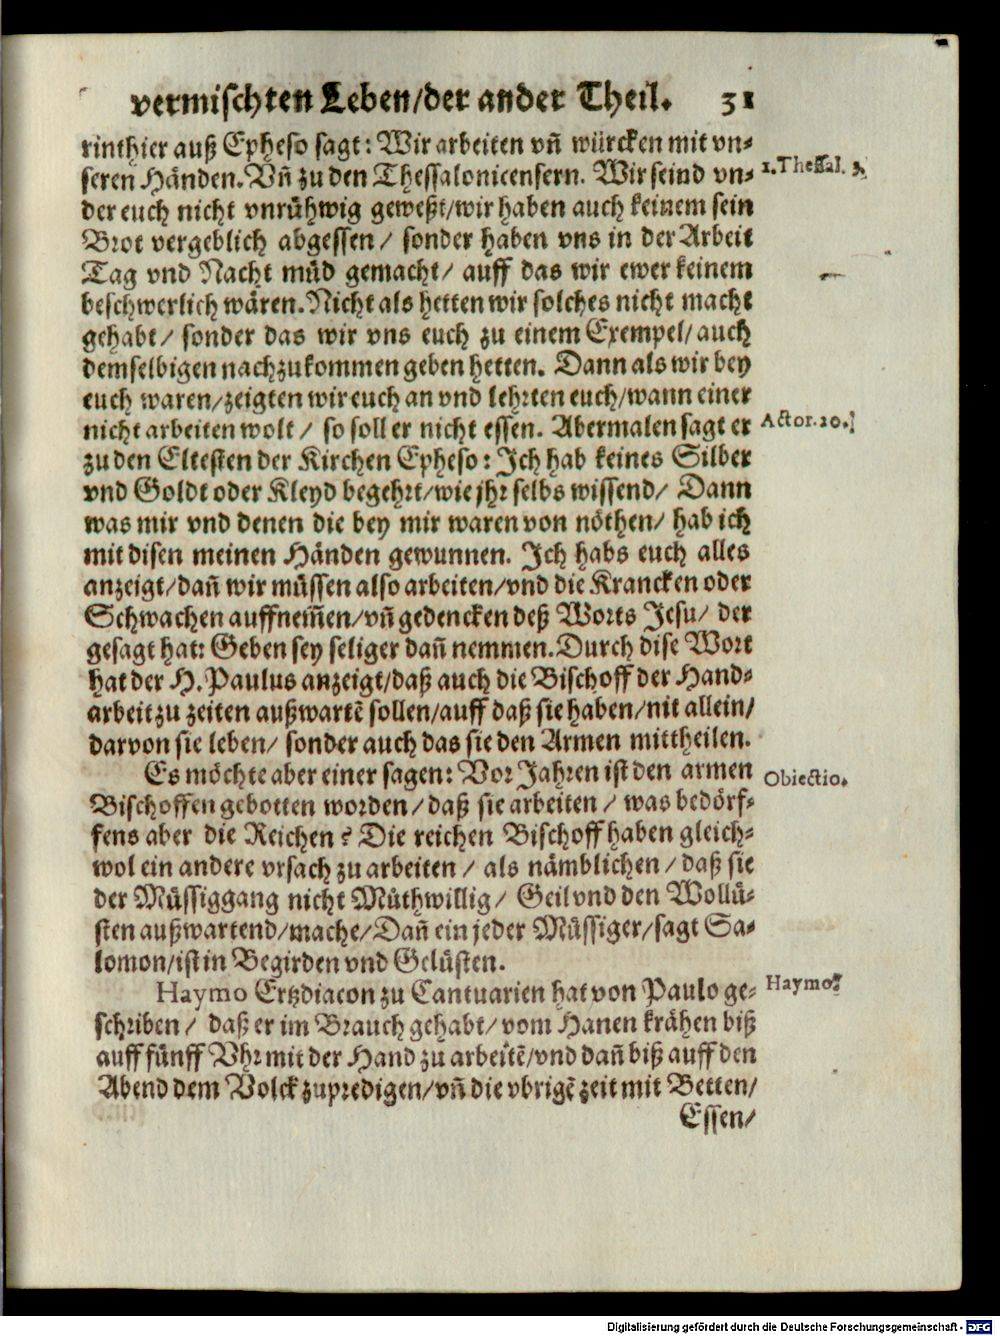 vermischten Leben/der ander Theil. 31
rinthier auß Epheso sagt: Wir arbeiten vñ würcken mit vn-
seren Händen. Vñ zu den Thessalonicensern. Wir seind vn- 1. Thessal. 3.
der euch nicht vnrühwig geweßt/wir haben auch keinem sein
Brot vergeblich abgessen/ sonder haben vns in der Arbeit
Tag vnd Nacht müd gemacht/ auff das wir ewer keinem
beschwerlich wären. Nicht als hetten wir solches nicht macht
gehabt/ sonder das wir vns euch zu einem Exempel/auch
demselbigen nachzukommen geben hetten. Dann als wir bey
euch waren/zeigten wir euch an vnd lehrten euch/wann einer
nicht arbeiten wolt/ so soll er nicht essen. Abermalen sagt er Actor. 20.
zu den Eltesten der Kirchen Epheso: Ich hab keines Silber
vnd Goldt oder Kleyd begehrt/wie jhr selbs wissend/ Dann
was mir vnd denen die bey mir waren von nöthen/ hab ich
mit disen meinen Händen gewunnen. Ich habs euch alles
anzeigt/dañ wir müssen also arbeiten/vnd die Krancken oder
Schwachen auffnem̃en/vñ gedencken deß Worts Jesu/ der
gesagt hat: Geben sey seliger dañ nemmen. Durch dise Wort
hat der H. Paulus anzeigt/daß auch die Bischoff der Hand-
arbeit zu zeiten außwartẽ sollen/auff daß sie haben/nit allein/
darvon sie leben/ sonder auch das sie den Armen mittheilen.
Es möchte aber einer sagen: Vor Jahren ist den armen Obiectio.
Bischoffen gebotten worden/daß sie arbeiten/ was bedörf-
fens aber die Reichen? Die reichen Bischoff haben gleich-
wol ein andere vrsach zu arbeiten/ als nämblichen/daß sie
der Müssiggang nicht Mûthwillig/ Geil vnd den Wollü-
sten außwartend/mache/Dañ ein jeder Müssiger/sagt Sa-
lomon/ist in Begirden vnd Gelüsten.
Haymo Ertzdiacon zu Cantuarien hat von Paulo ge- Haymo.
schriben/ daß er im Brauch gehabt/vom Hanen krähen biß
auff fünff Vhr mit der Hand zu arbeitẽ/vnd dañ biß auff den
Abend dem Volck zupredigen/vñ die vbrigẽ zeit mit Betten/
Essen/
Digitalisierung gefördert durch die Deutsche Forschungsgemeinschaft - DFG